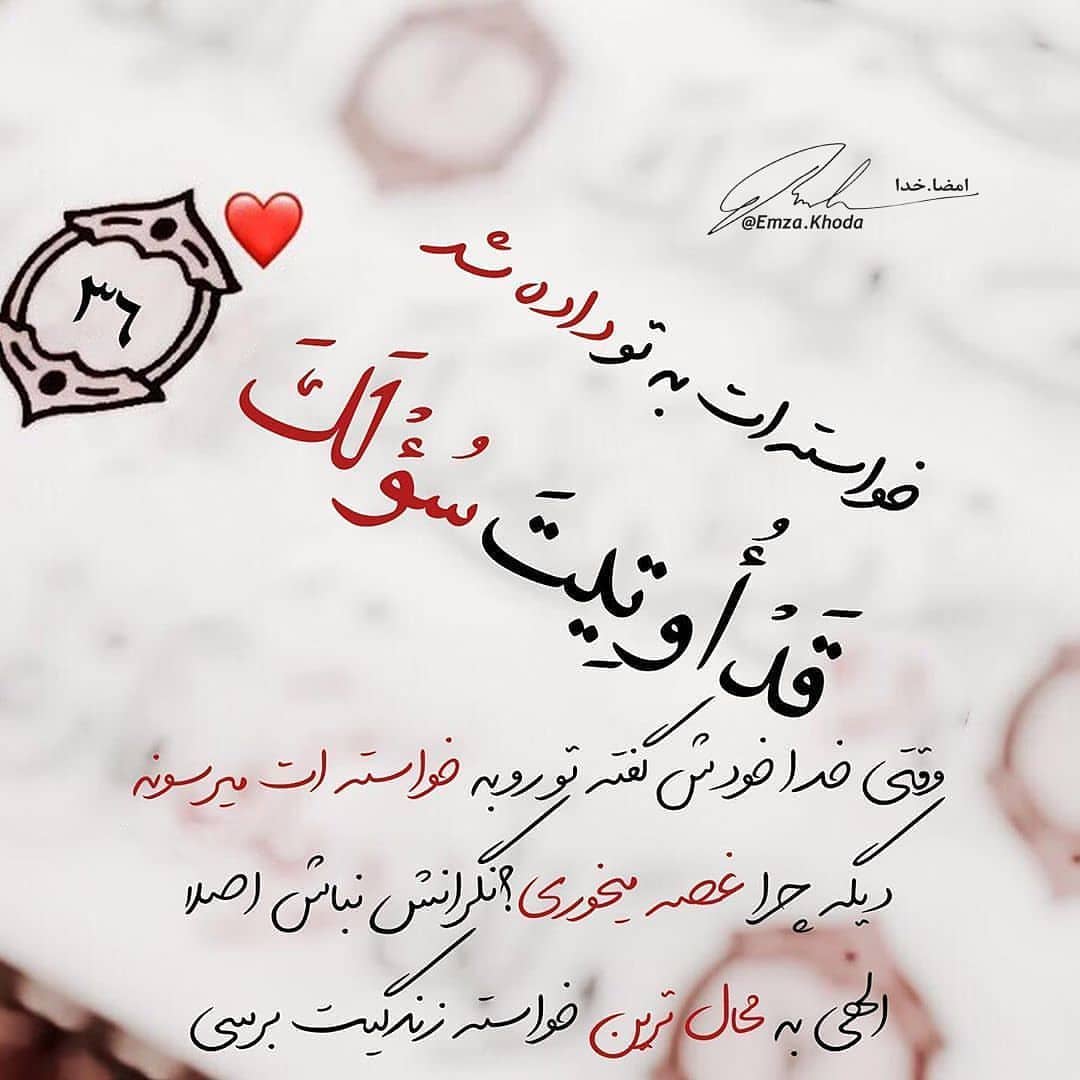 امضا.خدا
@Emza.Khoda
خواسته ات به تو داده شد
قَدْ أُوتِيتَ سُؤْلَكَ
٣٦
وقتی خدا خودش گفته تو رو به خواسته ات میرسونه
دیگه چرا غصه میخوری؟نگرانش نباش اصلا
الهی به محال ترین خواسته زندگیت برسی